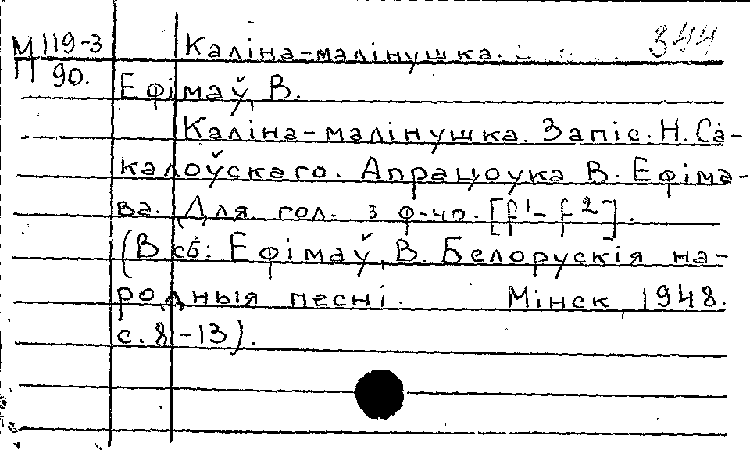 М 119-3 Каліна-малінушка. 344
П 90.
Ефімаў, В.
Каліна-малінушка. Запіс. Н. Са-
калоўскаго. Апрацоука В. Ефіма-
ва. Для гол. з ф-но. [f¹-f²].
(В сб: Ефімаў, В. Белорускія на-
родныя песні. Мінск, 1948.
с. 8-13).